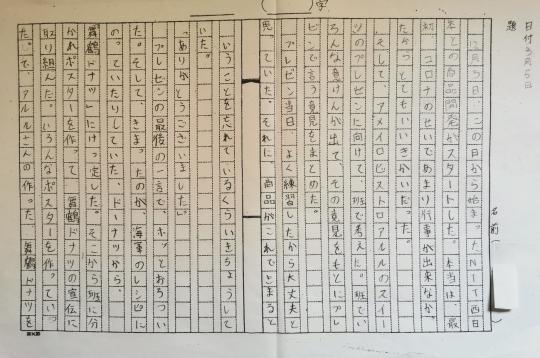 日付3月5日
題
名前(
)学
12月5日、この日から始まったNTT西日
本との商品開発がスタートした。本当は、最
初、コロナのせいであまり行事が出来なか
たからとてもいいきかいだった。
そして、アメイロビストロアルルのスイー
ツのプレゼンに向けて、班で考えた。班でい
ろんな意けんが出て、その意見をもとにプレ
ゼンで言う意見をまとめた。
プレゼン当日、よく練習したから大丈夫と
思っていた。それに、商品がこれで決まると
いうことを忘れているくらいきちょうして
いた。
「ありがとうございました。」
プレゼンの最後の一言で、ホッとおちつい
た。そして、きまったのが、海軍のレシピに
のっていたりしていた、ドーナツから、
「舞鶴ドナツ」にけっ定した。そこから班に分
かれポスターを作って、舞鶴ドナツの宣伝に
取り組んだ。いろんなポスターを作ってい
た。で、アルルさんの作った、舞鶴ドナツを